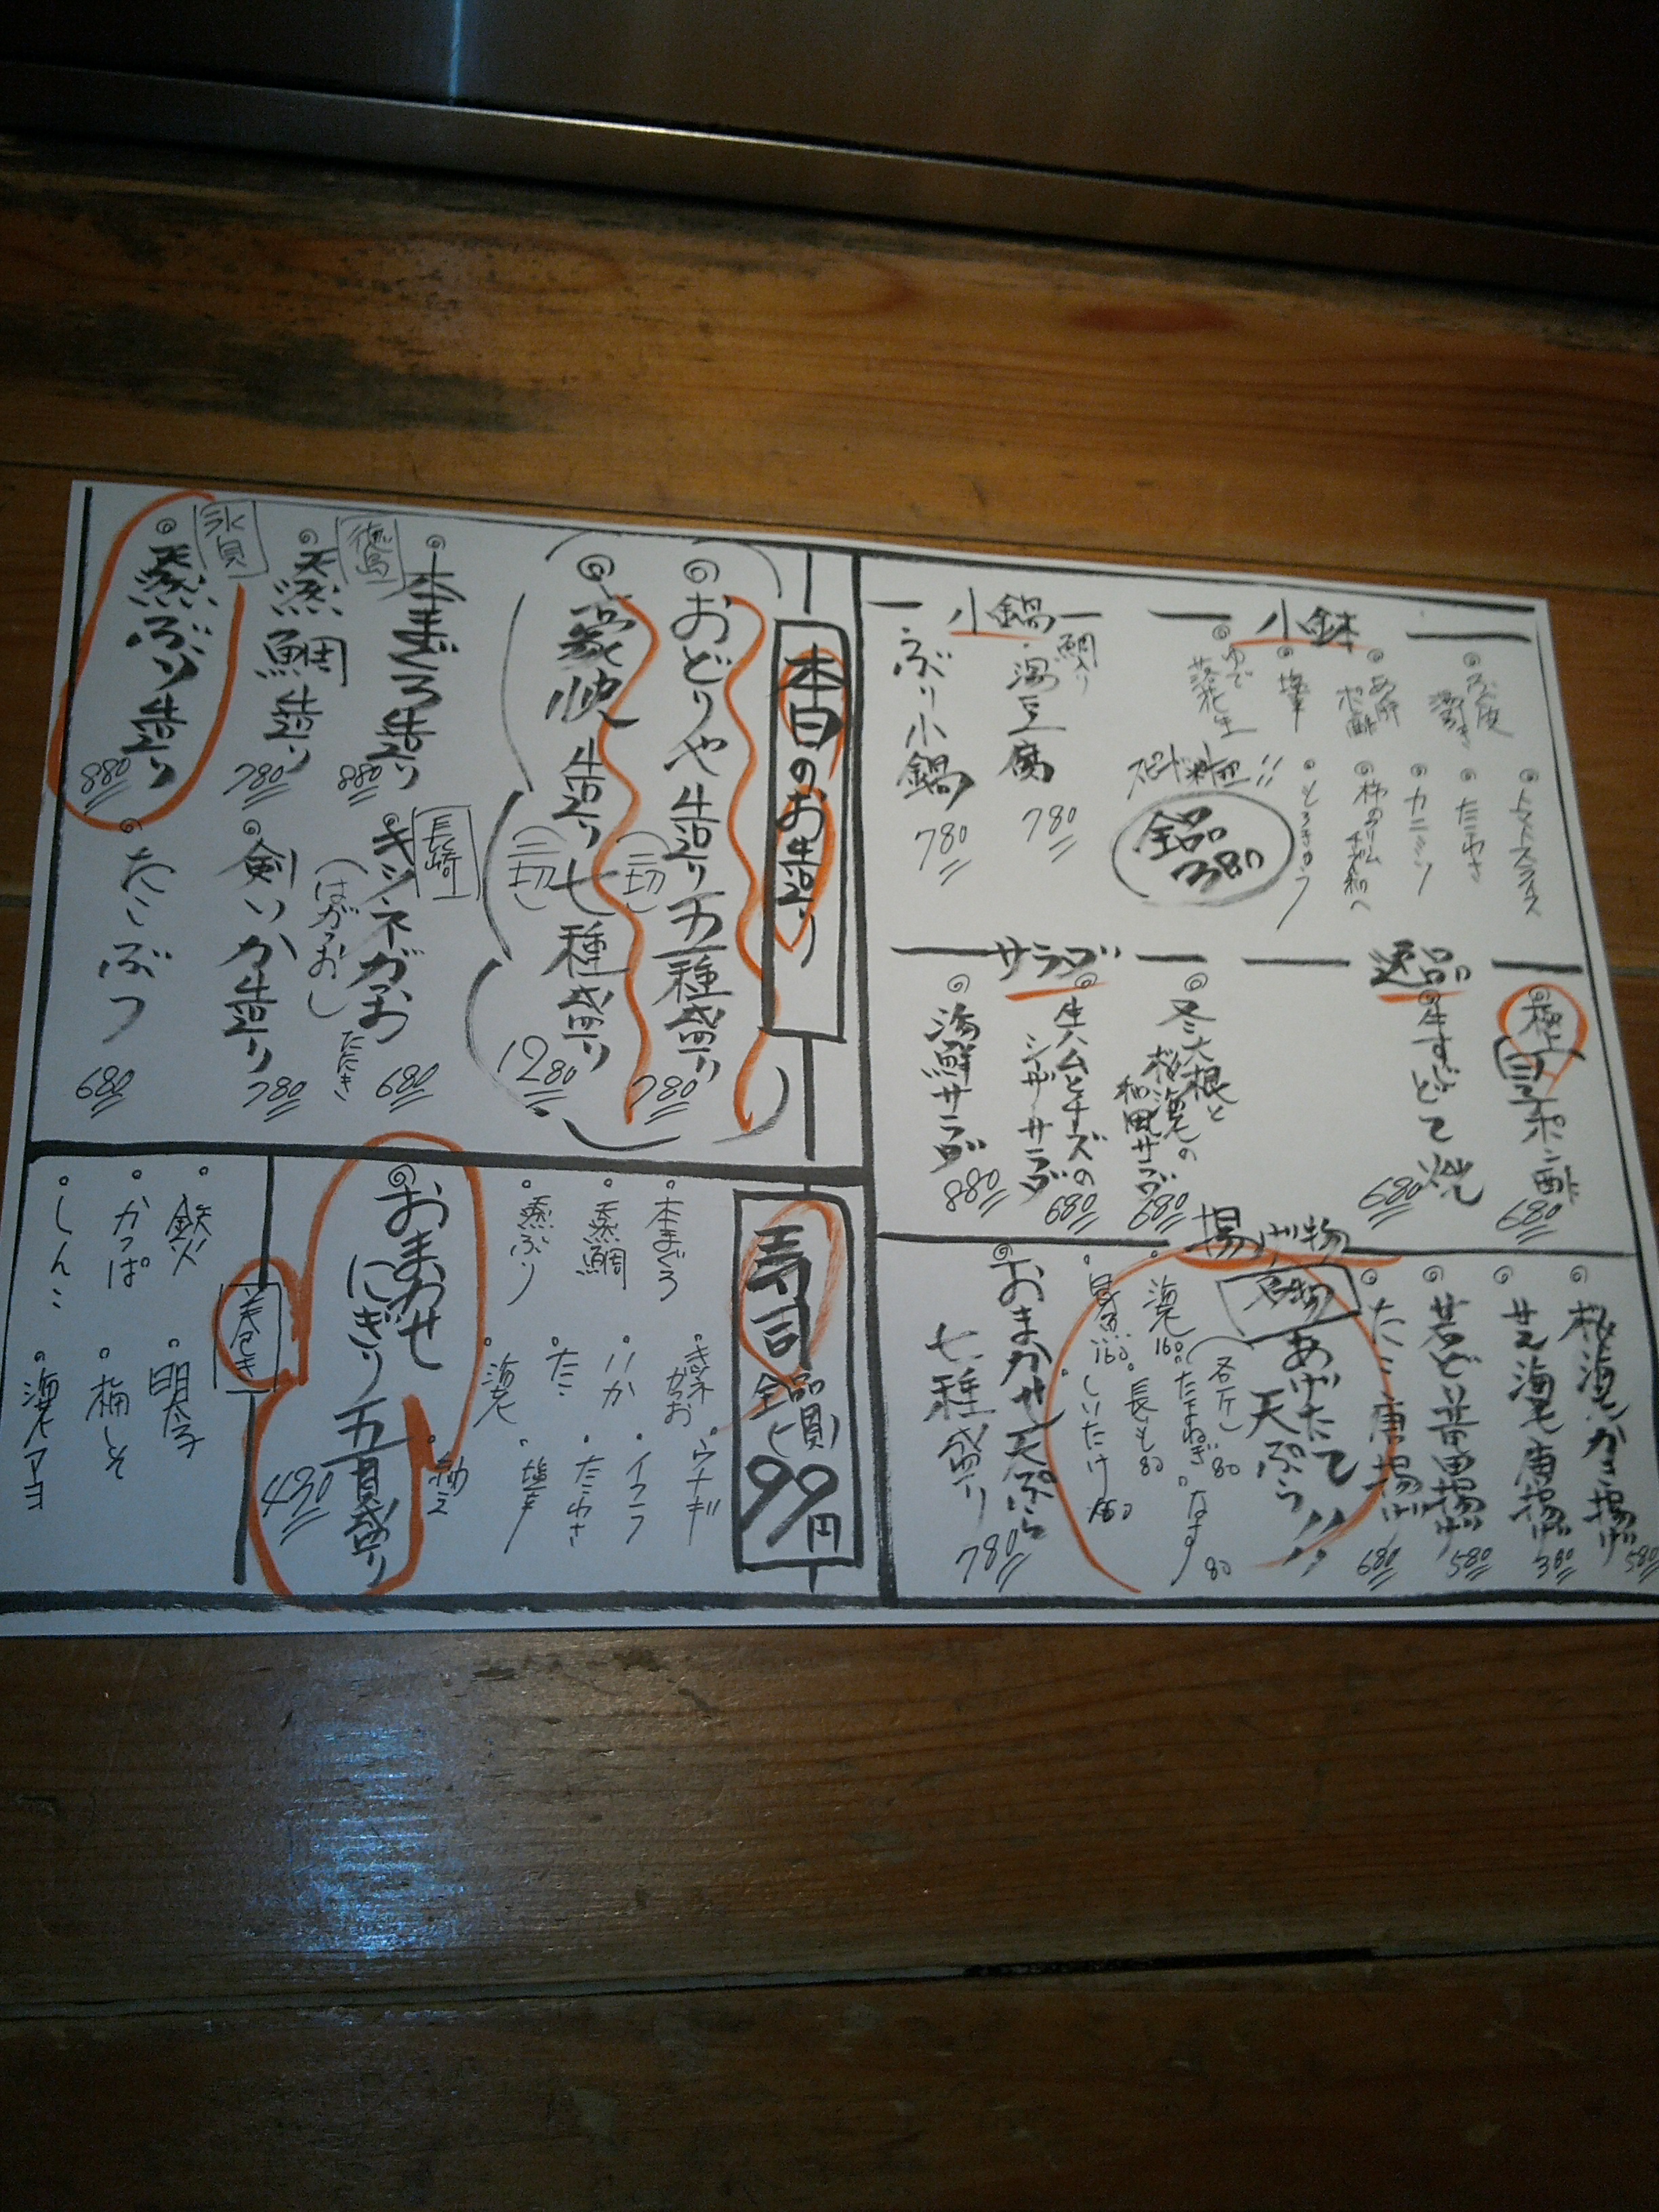 小鉢
ふぐ皮
湯引き
あん肝
ポン酢
塩辛
ゆで
落花生
トマトスライス
たこわさ
カニミソ
スピード料理!!
全品
380
小鍋
鯛入り
湯豆腐
780
ぶり小鍋
780
逸品
極上白子ポン酢
680
牛すじどて焼
680
サラダ
冬大根と
桜海老の
和風サラダ
680
生ハムとチーズの
シーザーサラダ
680
海鮮サラダ
880
揚げ物
桜海老かき揚げ
580
甘海老唐揚げ
380
若どり唐揚げ
580
たこ唐揚げ
680
名物
あげたて
天ぷら!!
海老160
たまねぎ
80
なす
80
長いも80
しいたけ
おまかせ天ぷら
七種盛り
780
本日のお造り
おどりや造り五種盛り
780
豪快造り七種盛り
1280
本まぐろ造り
880
徳島
天然鯛造り
780
氷見
天然ぶり造り
880
長崎
キツネがつお
(はがつお)
たたき
680
剣いか造り
780
たこぶつ
680
寿司全品一貫99円
本まぐろ
天然鯛
天然ぶり
きつね
がつお
いか
たこ
海老
ウナギ
イクラ
たこわさ
塩辛
納豆
おまかせ
にぎり五貫盛り
430
巻き
鉄火
かっぱ
しんこ
明太子
梅しそ
海老マヨ